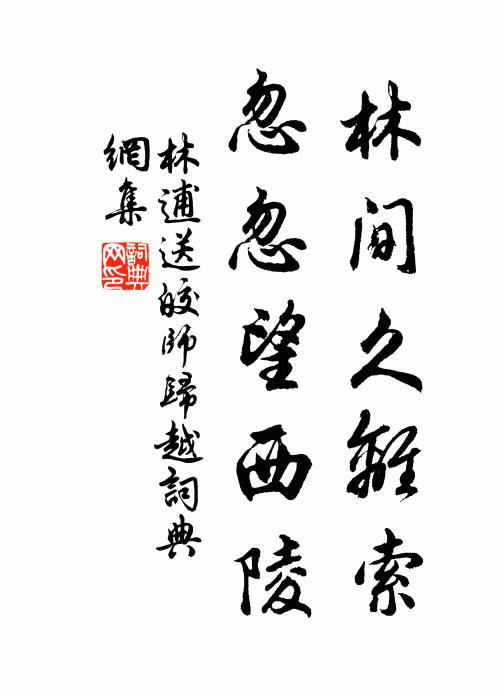 林間久離索
忽忽望西陵
林逋送皎師歸越詞典
網集
詞典網印